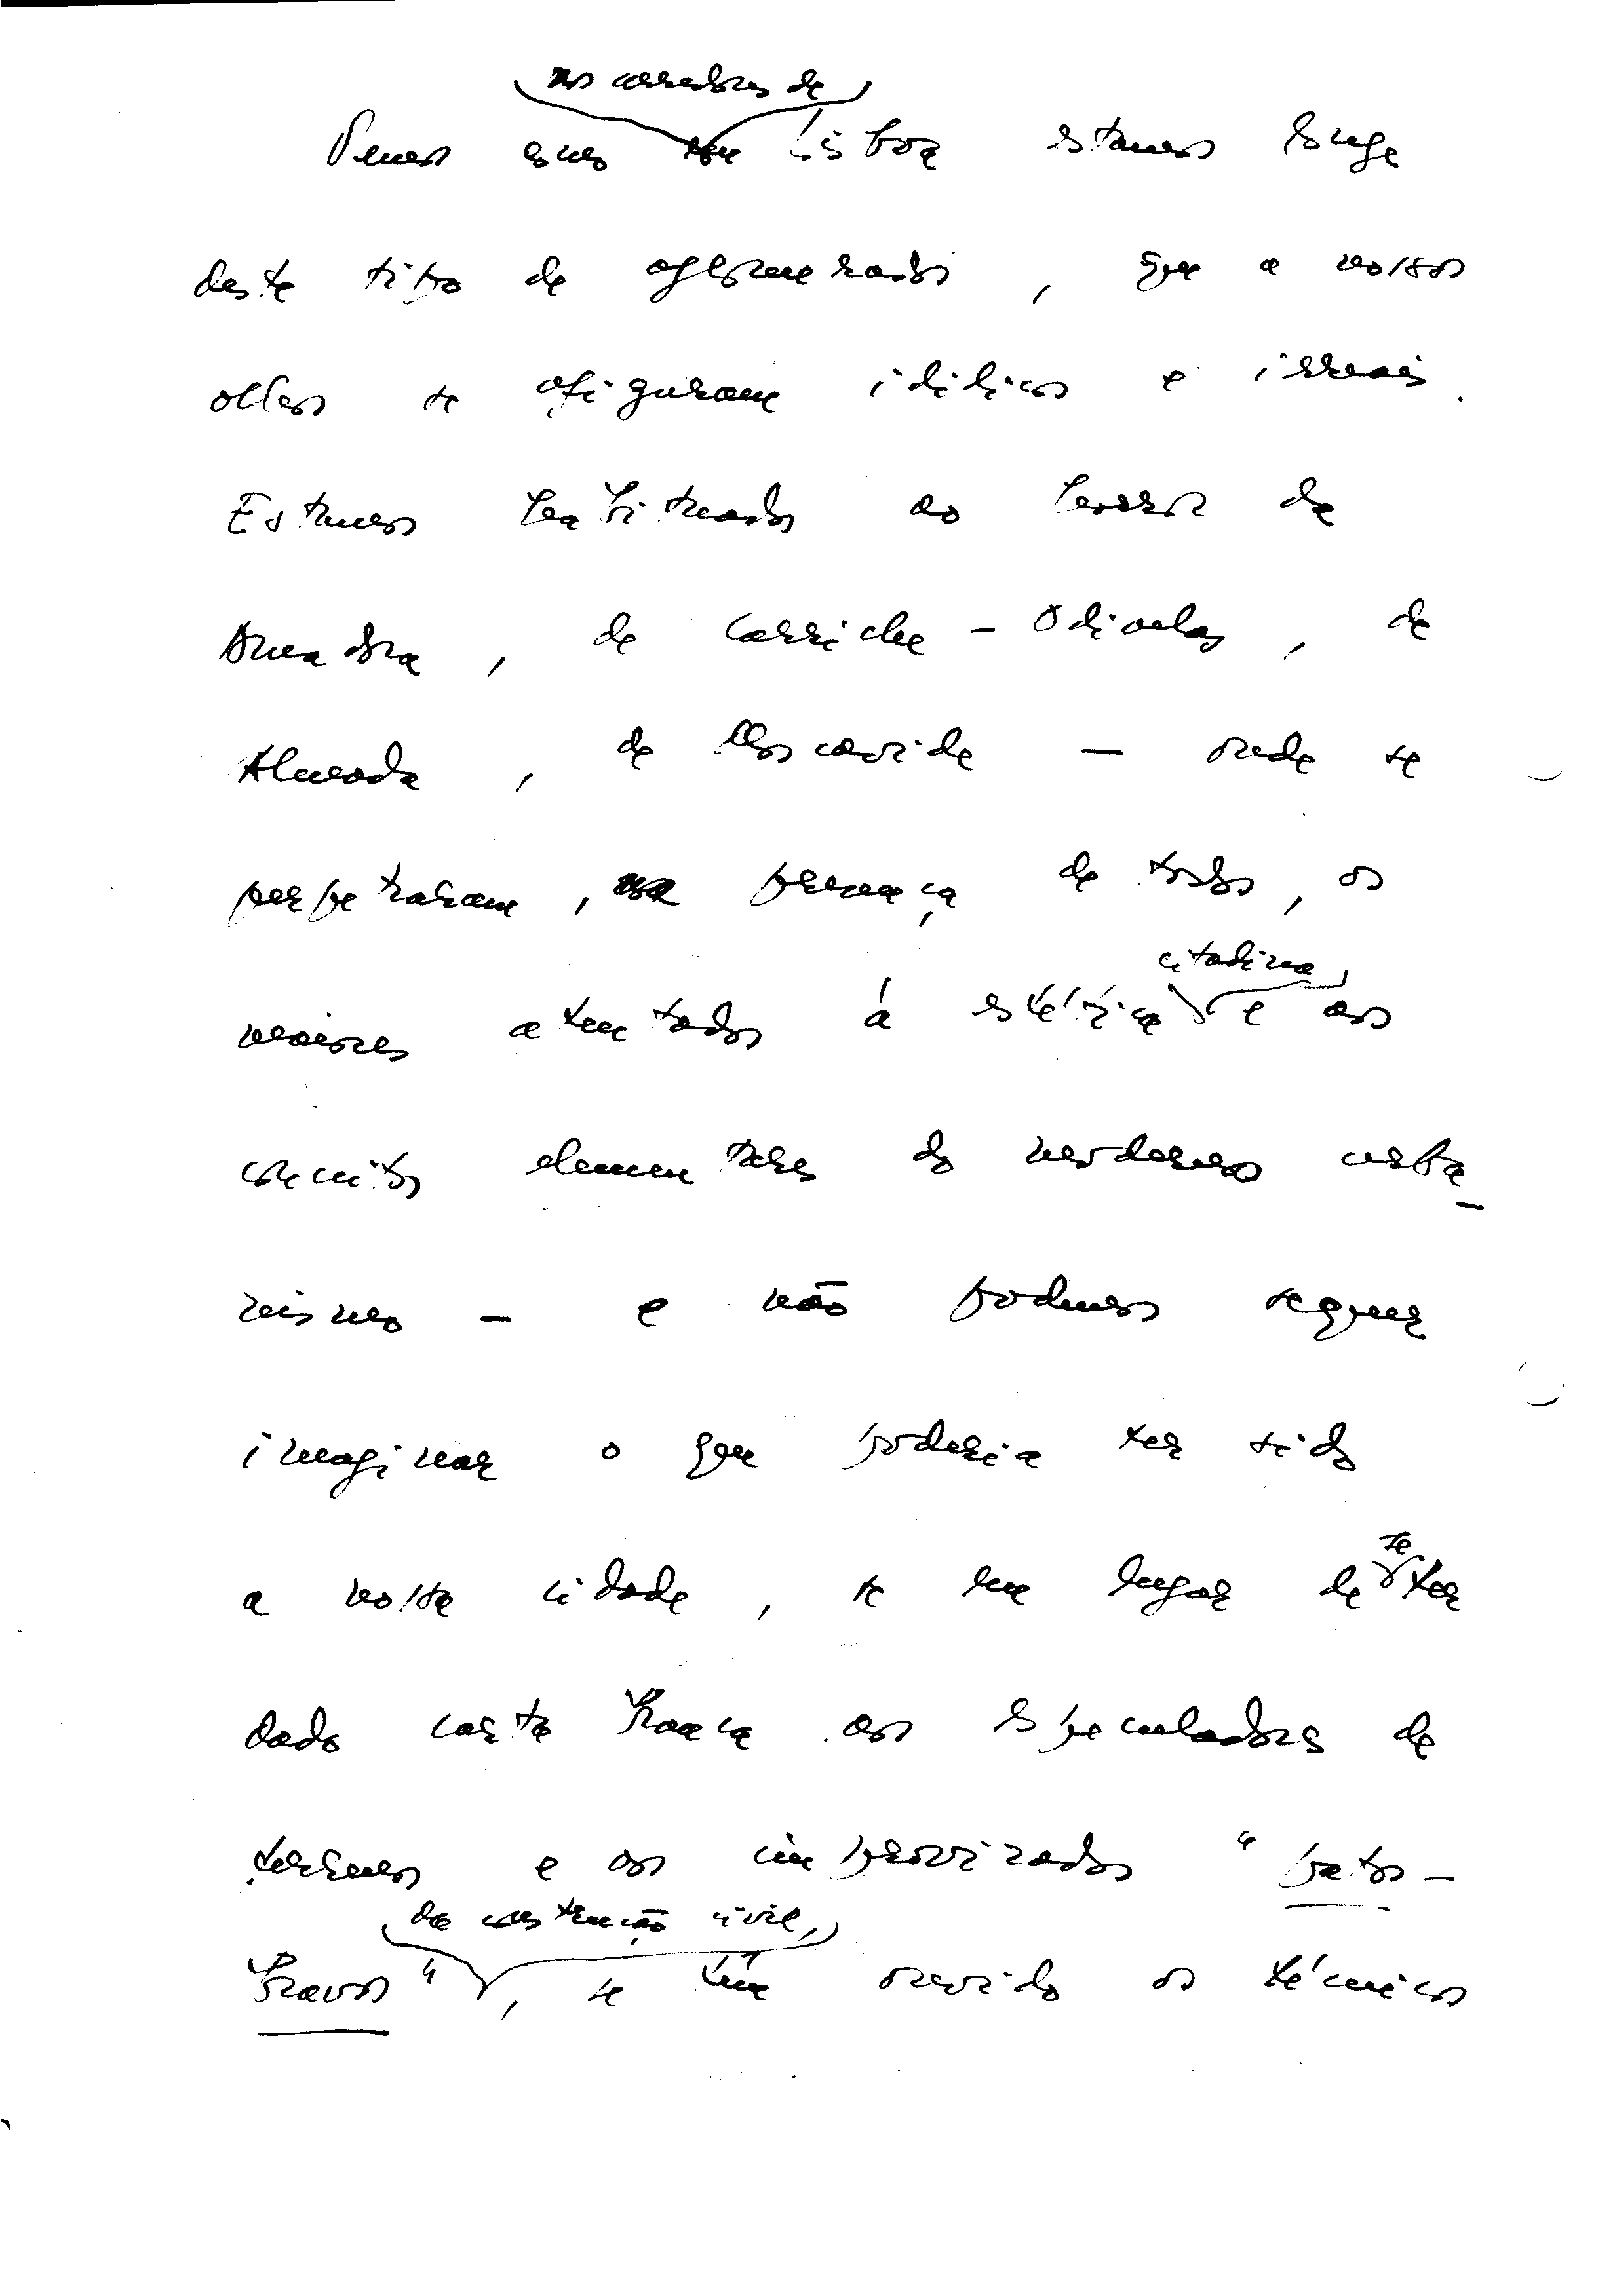 nos arredores de
Nós em Lisboa estamos longe
deste tipo de aglomerados, que a nossos
olhos se afiguram idílicos e irreais.
Estamos habituados ao horror da
Amadora, de Carriche - Odivelas, de
Almada, de Moscavide — onde se
perpetraram, na presença de todos, os
citadina,
maiores atentados à estética e aos
conceitos elementares do moderno urba_
nismo — e não podemos sequer
imaginar o que poderia ter sido
a nossa cidade, se em lugar de se ter
dado carta branca aos especuladores de
terrenos e aos improvizados "patos-
da construção civil,
bravos", se têm ouvido os técnicos